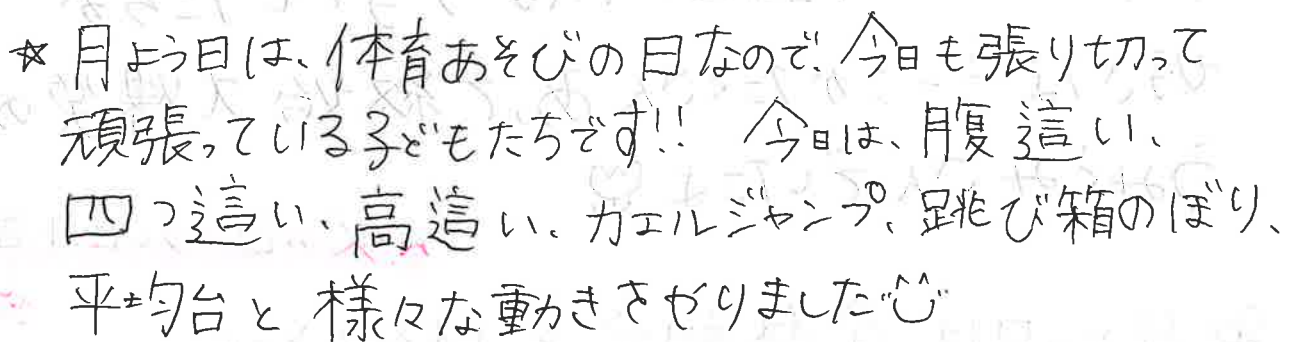 ☆月よう日は、体育あそびの日なので、今日も張り切って
頑張っている子どもたちです!! 今日は、腹這い、
四つ這い、高這い、カエルジャンプ、跳び箱のぼり、
平均台と様々な動きをやりました¨